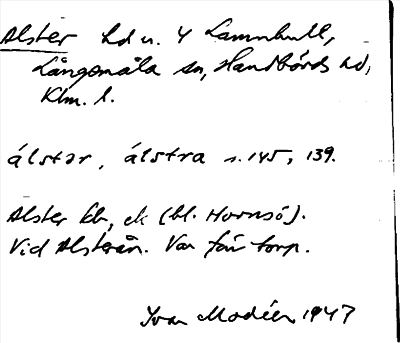 Alster hd u. 4 Lammhult,
Långemåla sn, Handbörds hd,
Klm. l.
álstər, álstra s. 145, 139.
Alster kb, ek (bl. Hornsö).
Vid Alsterån. Var förr torp.
Ivar Modéer 1947